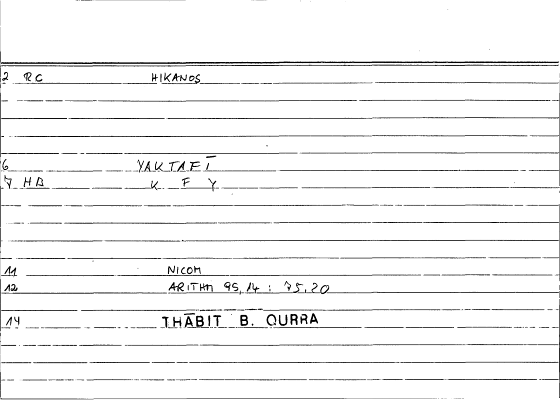 2 RC HIKANOS
6 YAKTAFĪ
7 HB K F Y
11 NICOM
12 ARITHM 95,14 : 75,20
14 THĀBIT B. QURRA